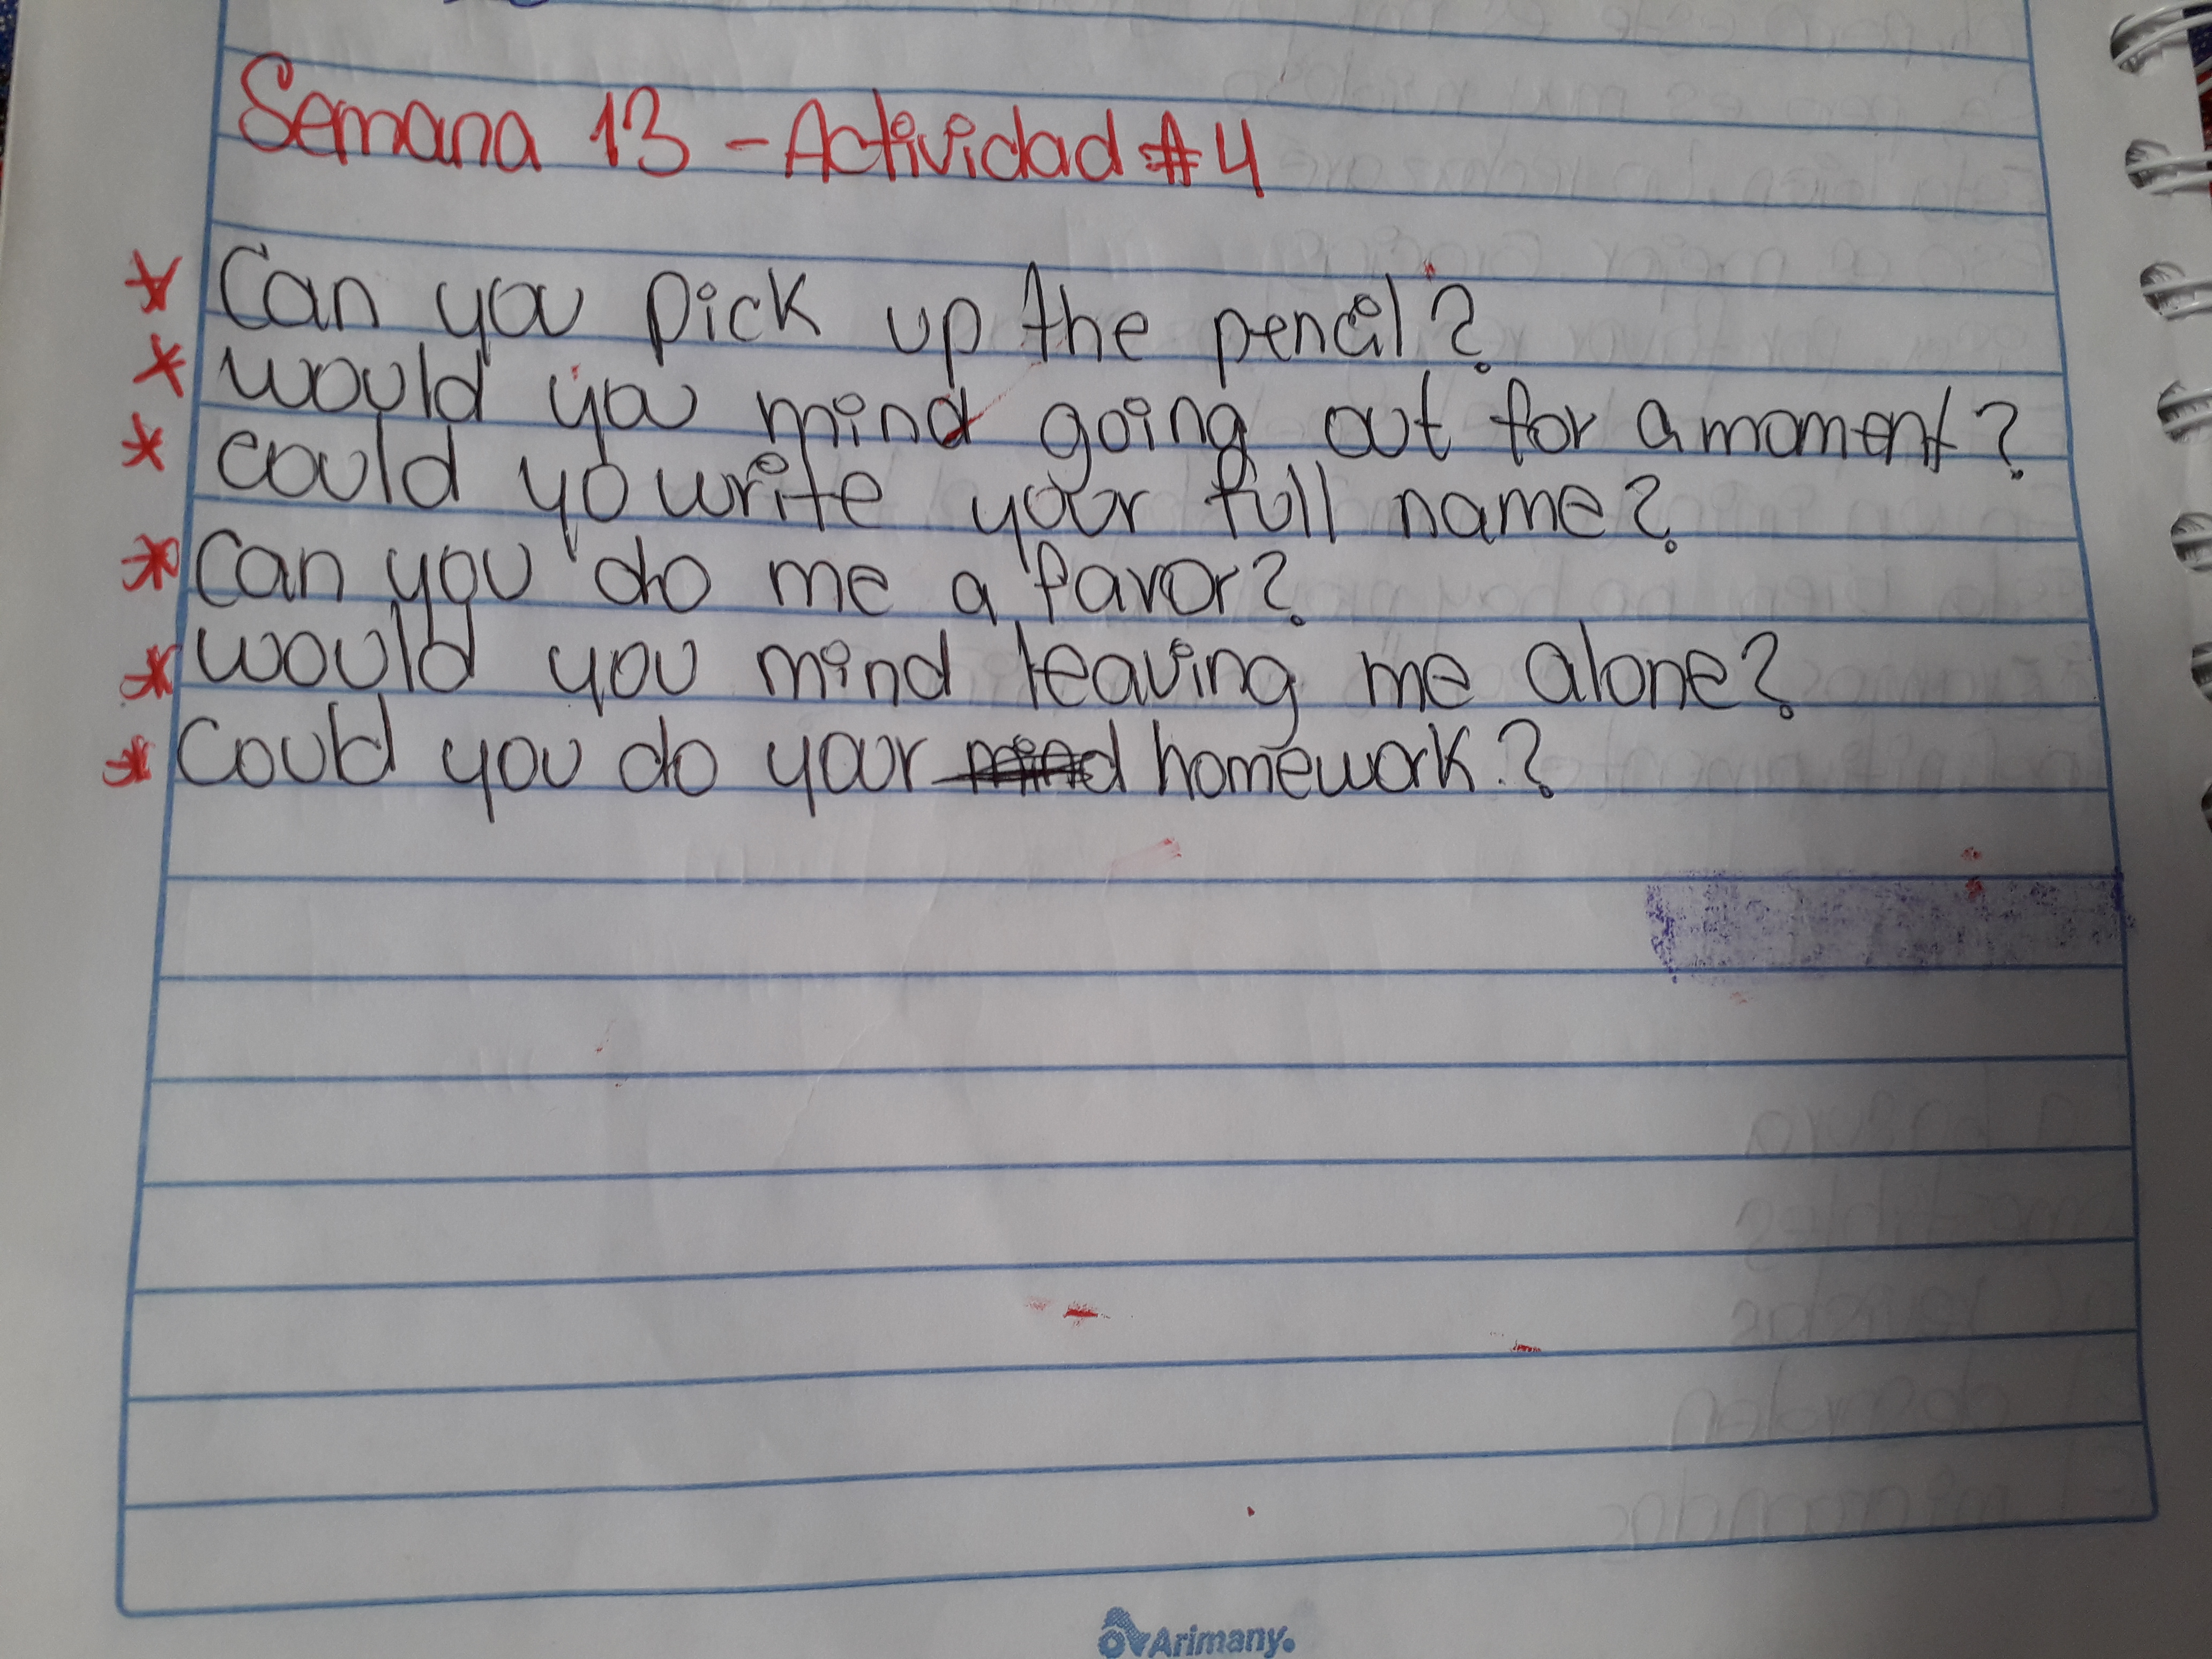 Semana 13 - Actividad #4
* Can you pick up the pencil?
* would you mind going out for a moment?
* could yo write your full name?
* can you do me a favor?
* would you mind leaving me alone?
* Could you do your mind homework.?
Arimany.